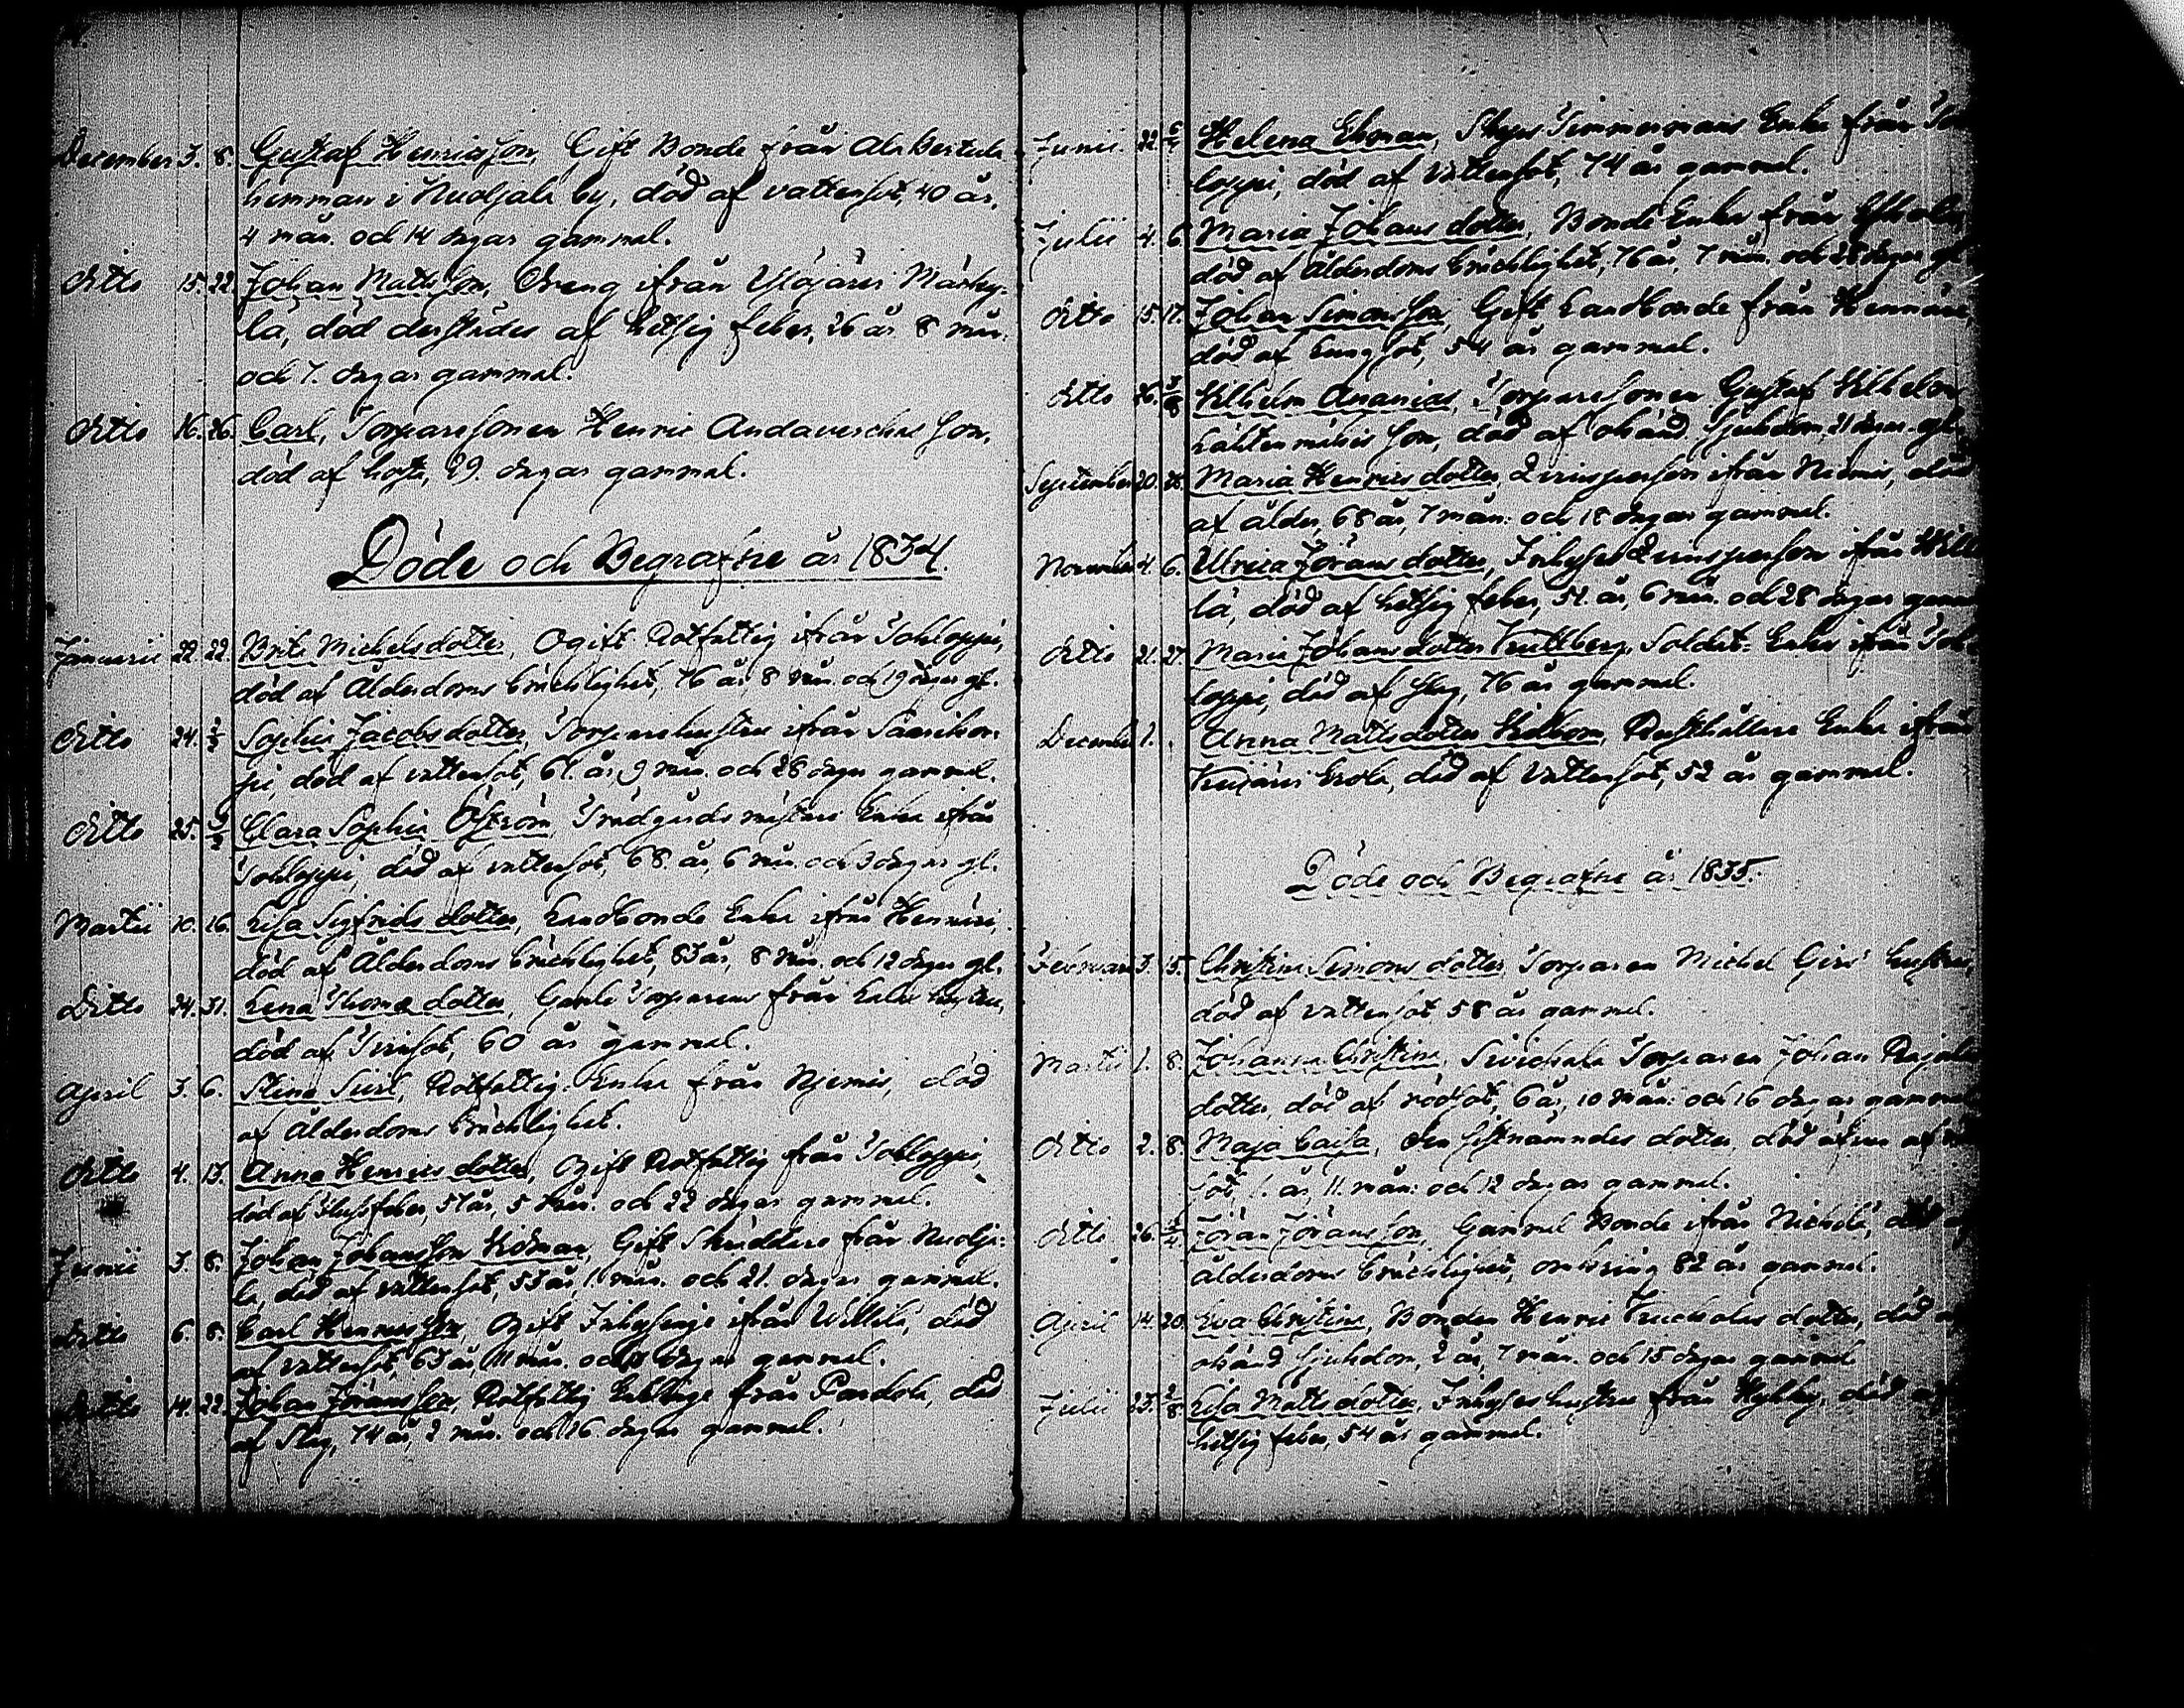 December 3. 8. Gustaf Henricsson, Gift Bonde från Ala Bertula
hemman i Nuoljala by, död af vattensot, 40 år,
4 mån. och 14 dagar gammal.
Ditto 15. 22. Johan Mattsson, Dreng ifrån Yläjärvi Märky-
lä, död dersstädes af hetsig feber, 26 år 8 mån.
och 7. dagar gammal.
Ditto 16. 26. Carl, Torparesonen Henric son,
död af hosta, 29. dagar gammal.
Döde och Begrafne år 1834.
Januarii 22. 22. Brita Michelsdotter, Ogift Rotfattig ifrån Sohloppi,
död af Ålderdoms bräcklighet, 76 år 8 mån. och 19 dagar gl.
Ditto 24. 2/2 Sophia Jacobsdotter, Torparehustru ifrån
död af vattensot, 61. år, 9 mån. och 28 dagar gammal.
Ditto 25. Clara Sophia Öström, Trädgårds mästare Enka ifrån
Sohloppi, död af vattensot, 68. år, 6 mån. och 3 dagar gl.
Martii 10. 16. Lisa Sigfrids dotter, Landbonde Enka ifrån
död af Ålderdoms bräcklighet, 83 år, 8 mån. och 12 dagar gl.
Ditto 24. 31. Lena Thomæ dotter, Gamla Torparens från
död af 60 år gammal.
April 3. 6. Stina Rotfattig Enka från Njemis, död
af Ålderdoms bräcklighet.
Ditto 4. 13. Anna Henrics dotter, Ogift Rotfattig från Sohloppi,
död af feber, 51 år, 5 mån. och 22 dagar gammal.
Junii 3. 8. Johan Johansson Gift Skräddare från Nuolja-
la, död af vattensot, 53 år, 11 mån. och 21. dagar gammal.
Ditto 6. 8. Carl Henricsson, Ogift Inhysinge ifrån Willilä, död
af vattensot, 63 år, mån. och dagar gammal.
Ditto 14. 22. Johan Jöransson, Rotfattig Enkling från Pandola, död
af Slag, 74 år, 2 mån. och 16 dagar gammal.
Junii 22. Helena Ekman, Timmermans Enka från Soh
loppi, död af Vattensot, 74 år gammal.
Julii 4. 6 Maria Johans dotter, Bonde Enka från
död af Ålderdoms bräcklighet, 76 år, 7 mån. och 28 dagar gl
Ditto 15. 17. Johan Simonsson, Gift Landbonde från
död af Lungsot, 54 år gammal.
Ditto 26. 3/8 Wilhelm Ananias, Torparesonen Gustaf Wilhelm
son, död af okänd Sjukdom, 21 dagar gl.
September 20. Maria Henrics dotter, Qvinsperson ifrån Niemis, död
af ålder, 68 år, 7 mån. och 18 dagar gammal.
November 4. 6. Ulrica Jörans dotter, Inhyses Qvinsperson ifrån Willi
lä, död af hetsig feber, 51. år, 6 mån. och 28 dagar gamm
Ditto 21. 27 Maria Johansdotter Soldat-Enka ifrån Soh
loppi, död af slag, 76 år gammal.
December 1. Anna Matts dotter Rusthållare Enka ifrån
död af Vattensot, 52 år gammal.
Döde och Begrafne år 1835.
Februarii 3. 15. Christina Simons dotter, Torparen Michel hustru,
död af vattensot 58 år gammal.
Martii 1. 8. Johanna Christina, Torparen Johan
dotter, död af rödsot, 6 år, 10 mån. och 16 dagar gammal
Ditto 2. 8. Maja Caisa, den sistnämndes dotter, död äfven af
sot, 1. år, 11. mån. och 12 dagar gammal.
Ditto 26. Jöran Jöransson, Gammal Bonde ifrån Nichilä, död af
ålderdoms bräcklighet, omkring 82 år gammal.
April 14. 20. Eva Christina, Bonden Henric dotter, död af
okänd sjukdom, 2 år, 7 mån. och 15 dagar gammal
Julii 23. 2/8 Lisa Matts dotter, Inhyses hustru från Hyhky, död af
hetsig feber, 54 år gammal.